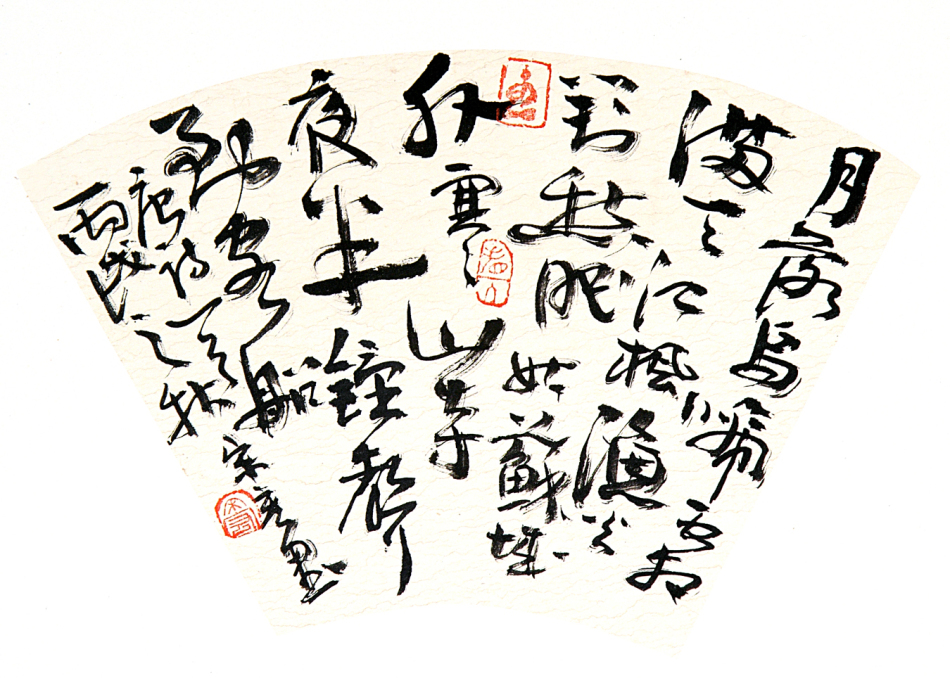 月落烏啼霜
滿天江楓漁火
對愁眠姑蘇城
外寒山寺
夜半鐘聲
到客船
唐诗一首
丙戌之秋
宋亮墨